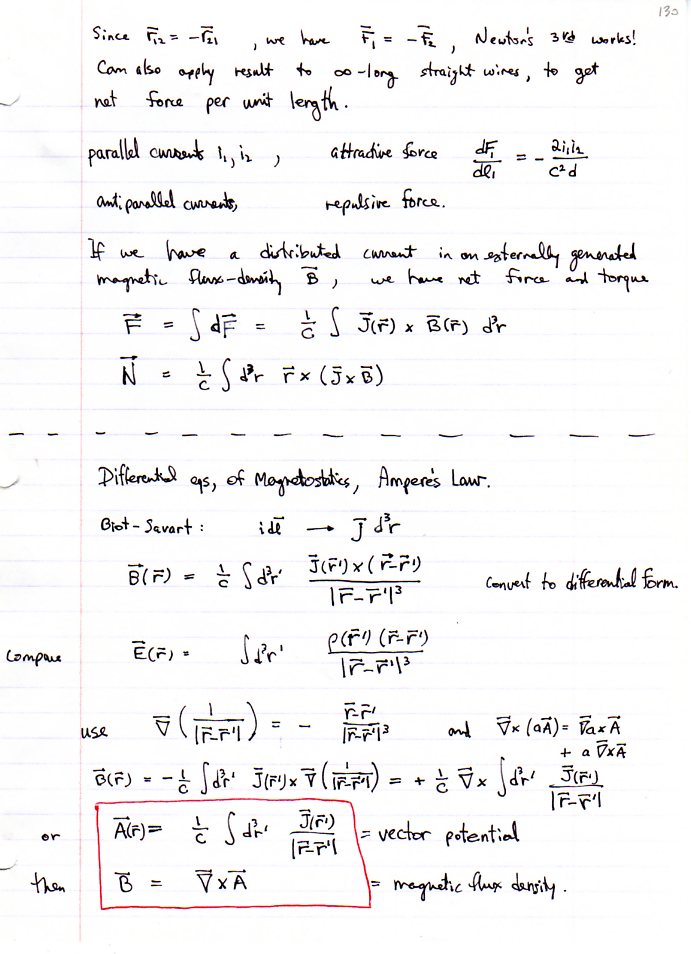 130
Since r⃗₁₂ = -r⃗₂₁ , we have F⃗₁ = -F⃗₂ , Newton's 3rd works!
Can also apply result to ∞-long straight wires, to get
net force per unit length.
parallel currents i₁, i₂ , attractive force dF₁/dl₁ = - 2i₁i₂/c²d
antiparallel currents, repulsive force.
If we have a distributed current in an externally generated
magnetic flux-density B⃗ , we have net force and torque
F⃗ = ∫ dF⃗ = 1/c ∫ J⃗(r⃗) × B⃗(r⃗) d³r
N⃗ = 1/c ∫ d³r r⃗ × (J⃗ × B⃗)
Differential eqs, of Magnetostatics, Ampere's Law.
Biot-Savart : idl⃗ → J⃗ d³r
B⃗(r⃗) = 1/c ∫ d³r' J⃗(r⃗') × (r⃗-r⃗')/|r⃗-r⃗'|³ convert to differential form.
Compare E⃗(r⃗) = ∫ d³r' ρ(r⃗') (r⃗-r⃗')/|r⃗-r⃗'|³
use ∇⃗ (1/|r⃗-r⃗'|) = - r⃗-r⃗'/|r⃗-r⃗'|³ and ∇⃗×(aA⃗) = ∇⃗a×A⃗
+ a ∇⃗×A⃗
B⃗(r⃗) = - 1/c ∫ d³r' J⃗(r⃗') × ∇⃗ (1/|r⃗-r⃗'|) = + 1/c ∇⃗ × ∫ d³r' J⃗(r⃗')/|r⃗-r⃗'|
or A⃗(r⃗) = 1/c ∫ d³r' J⃗(r⃗')/|r⃗-r⃗'| = vector potential
then B⃗ = ∇⃗×A⃗ = magnetic flux density.